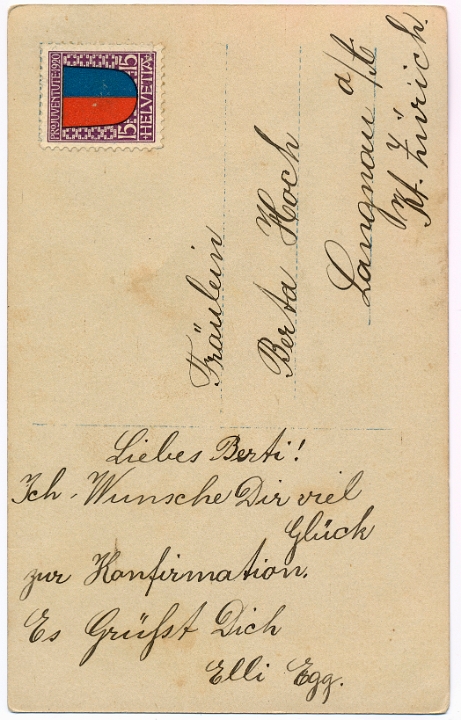 PRO JUVENTUTE·1920
HELVETIA
15 15
Fräulein
Berta Hoch
Langnau a/A.
Kt. Zürich.
Liebes Berti!
Ich Wunsche Dir viel
Glück
zur Konfirmation.
Es Grüßt Dich
Elli Egg.